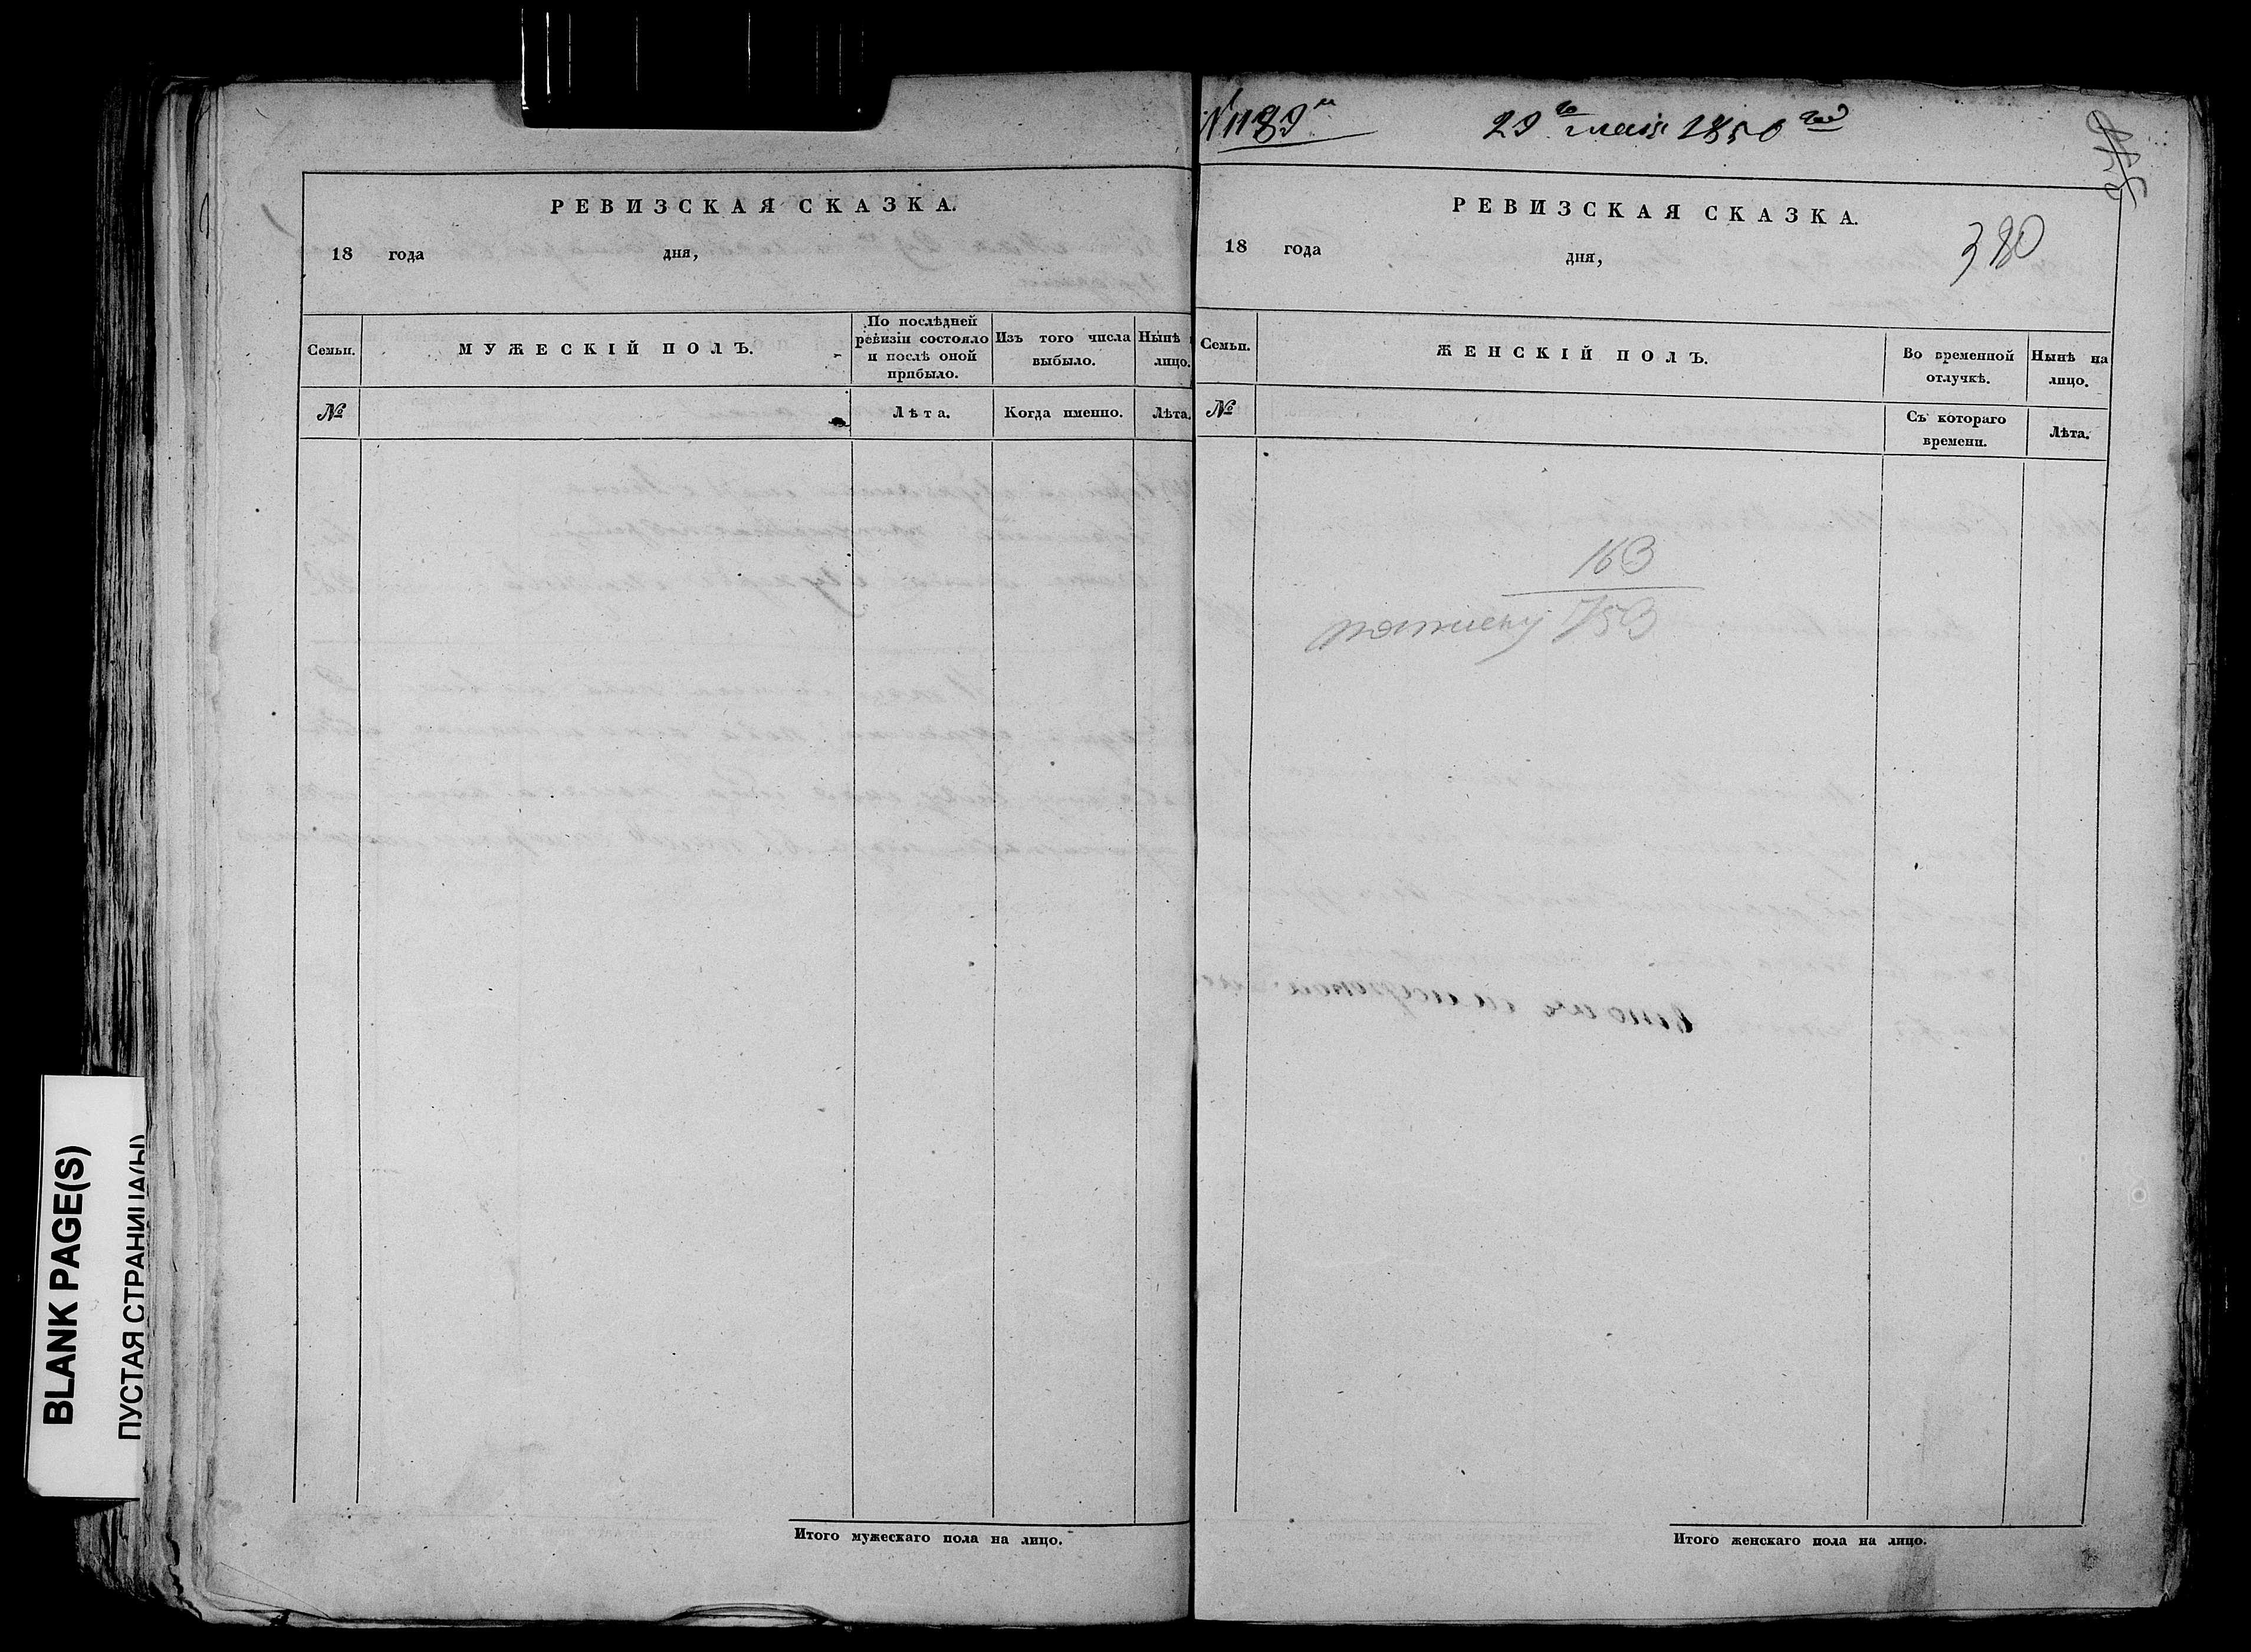 РЕВИЗСКАЯ СКАЗКА.
18 года дня,
Семьи. МУЖЕСКІЙ ПОЛЪ. По послѣдней ревизіи состояло и послѣ оной прибыло. Изъ того числа выбыло. Нынѣ лицо.
№ Лѣта. Когда именно. Лѣта.
Итого мужескаго пола на лицо.
29го маія 1850 год
РЕВИЗСКАЯ СКАЗКА.
18 года дня,
380
Семьи. ЖЕНСКІЙ ПОЛЪ. Во временной отлучкѣ. Нынѣ на лицо.
№ Съ котораго времени. Лѣта.
163
Итого женскаго пола на лицо.
BLANK PAGE(S)
ПУСТАЯ СТРАНИЦА(Ы)